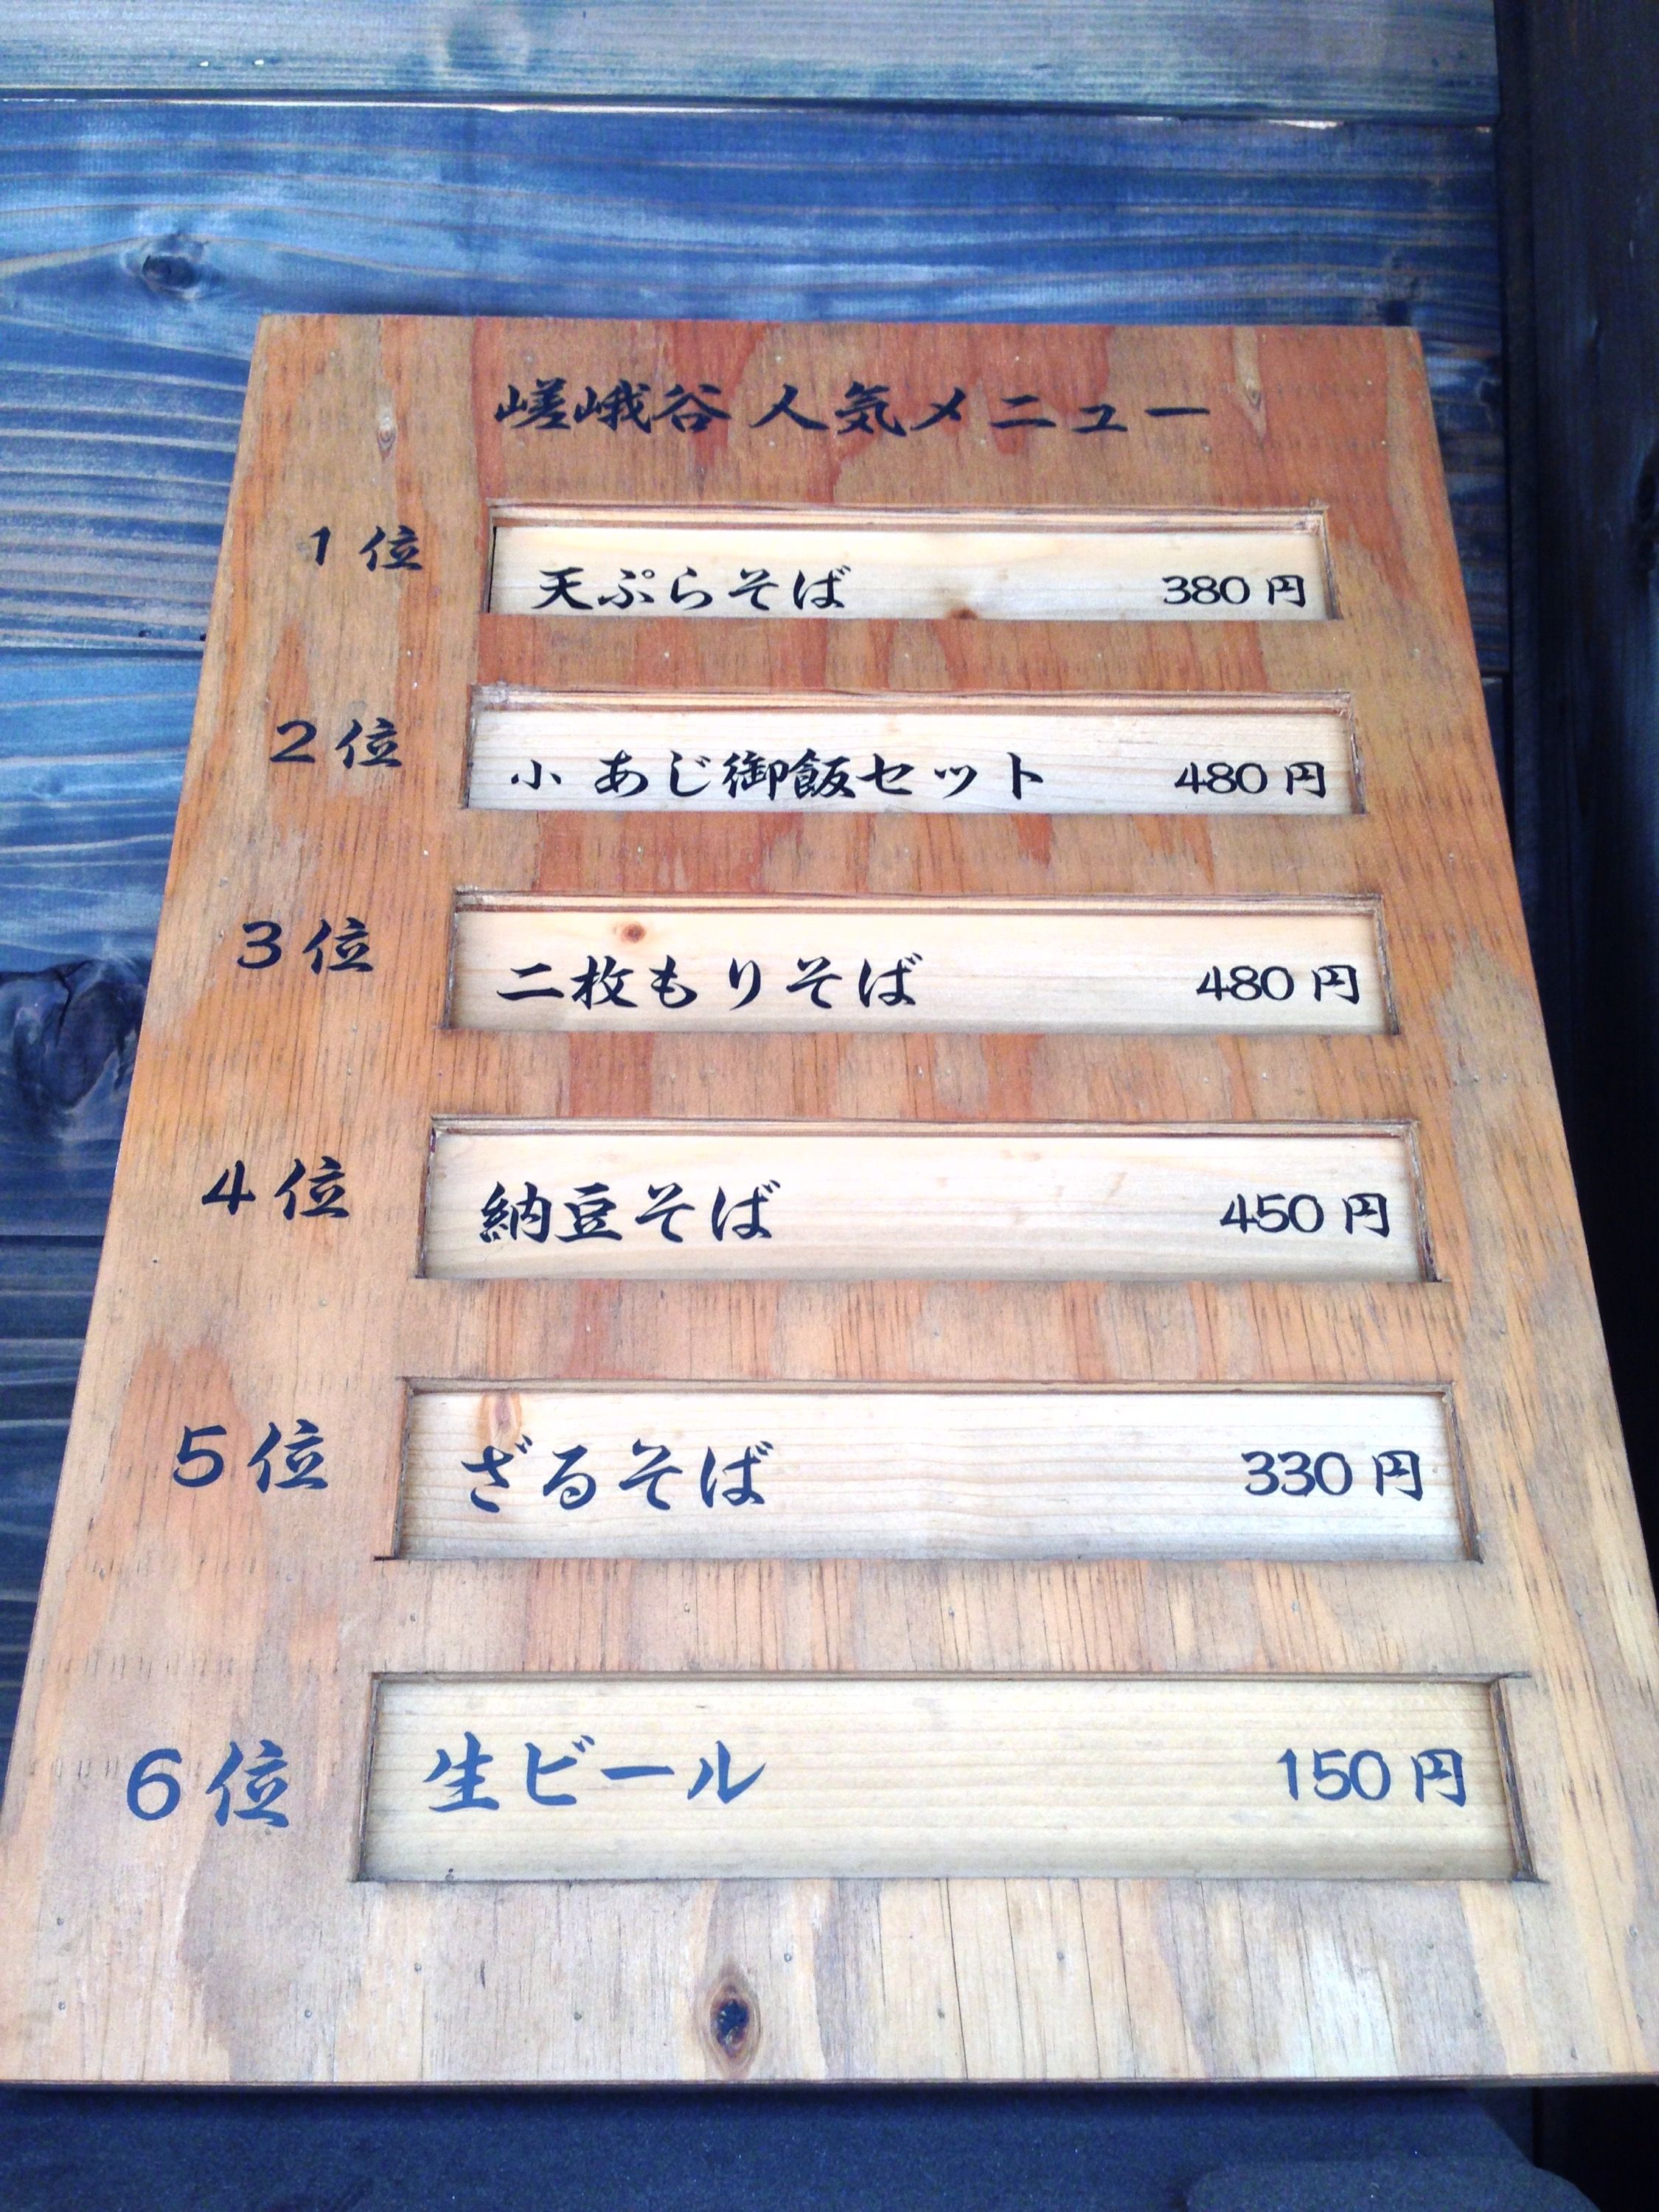 嵯峨谷 人気メニュー
1位 天ぷらそば 380円
2位 小 あじ御飯セット 480円
3位 二枚もりそば 480円
4位 納豆そば 450円
5位 ざるそば 330円
6位 生ビール 150円